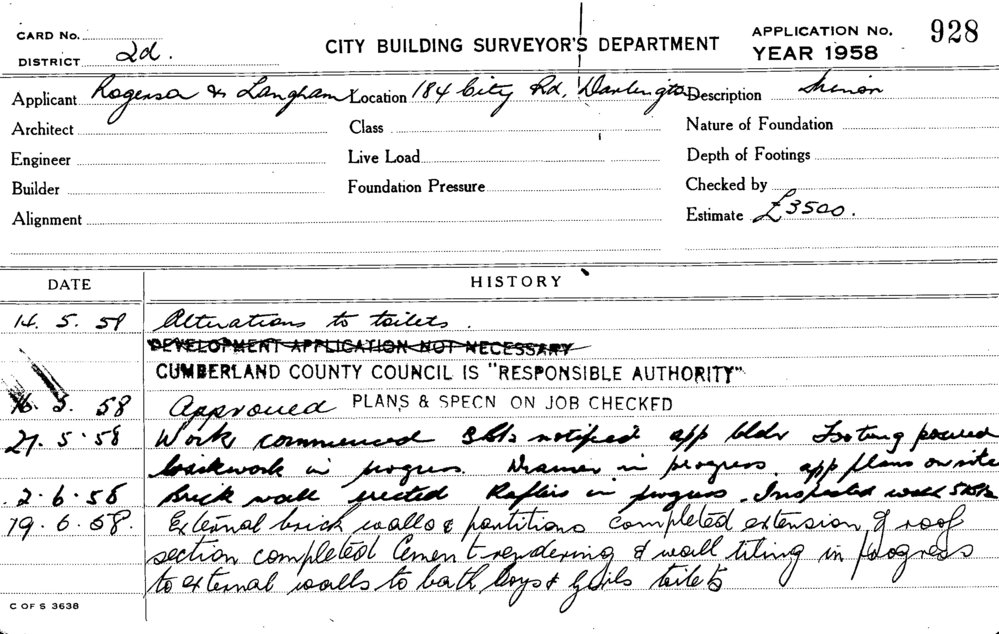 CARD No.
DISTRICT 2d.
CITY BUILDING SURVEYOR'S DEPARTMENT
APPLICATION No. 928
YEAR 1958
Applicant Rogerson & Langham Location 184 City Rd, Darlington Description
Architect Class Nature of Foundation
Engineer Live Load Depth of Footings
Builder Foundation Pressure Checked by
Alignment Estimate £3500.
DATE HISTORY
14. 5. 58 Alterations to toilets.
DEVELOPMENT APPLICATION NOT NECESSARY
CUMBERLAND COUNTY COUNCIL IS "RESPONSIBLE AUTHORITY"
16. 5. 58 Approved PLANS & SPECN ON JOB CHECKED
27. 5. 58 Work commenced notified app bldr Footing poured
brickwork in progress. in progress. app plans on site
2. 6. 58 Brick wall erected Rafters in progress. Inspected
19. 6. 58. External brick walls & partitions completed extension of roof
section completed Cement rendering & wall tiling in progress
to external walls to both boys & girls toilets
C OF S 3638